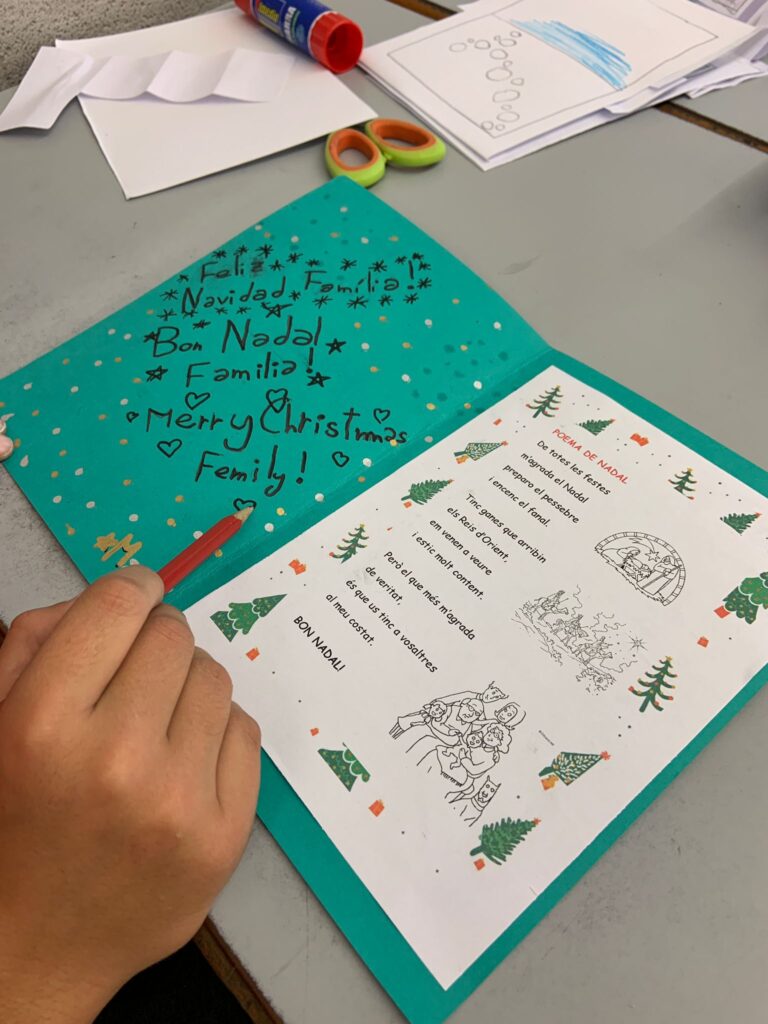 Feliz
Navidad Família!
Bon Nadal
Família!
Merry Christmas
Femily!
M
POEMA DE NADAL
De totes les festes
m'agrada el Nadal
preparo el pessebre
i encenc el fanal.
Tinc ganes que arribin
els Reis d'Orient,
em venen a veure
i estic molt content.
Però el que més m'agrada
de veritat,
és que us tinc a vosaltres
al meu costat.
BON NADAL!